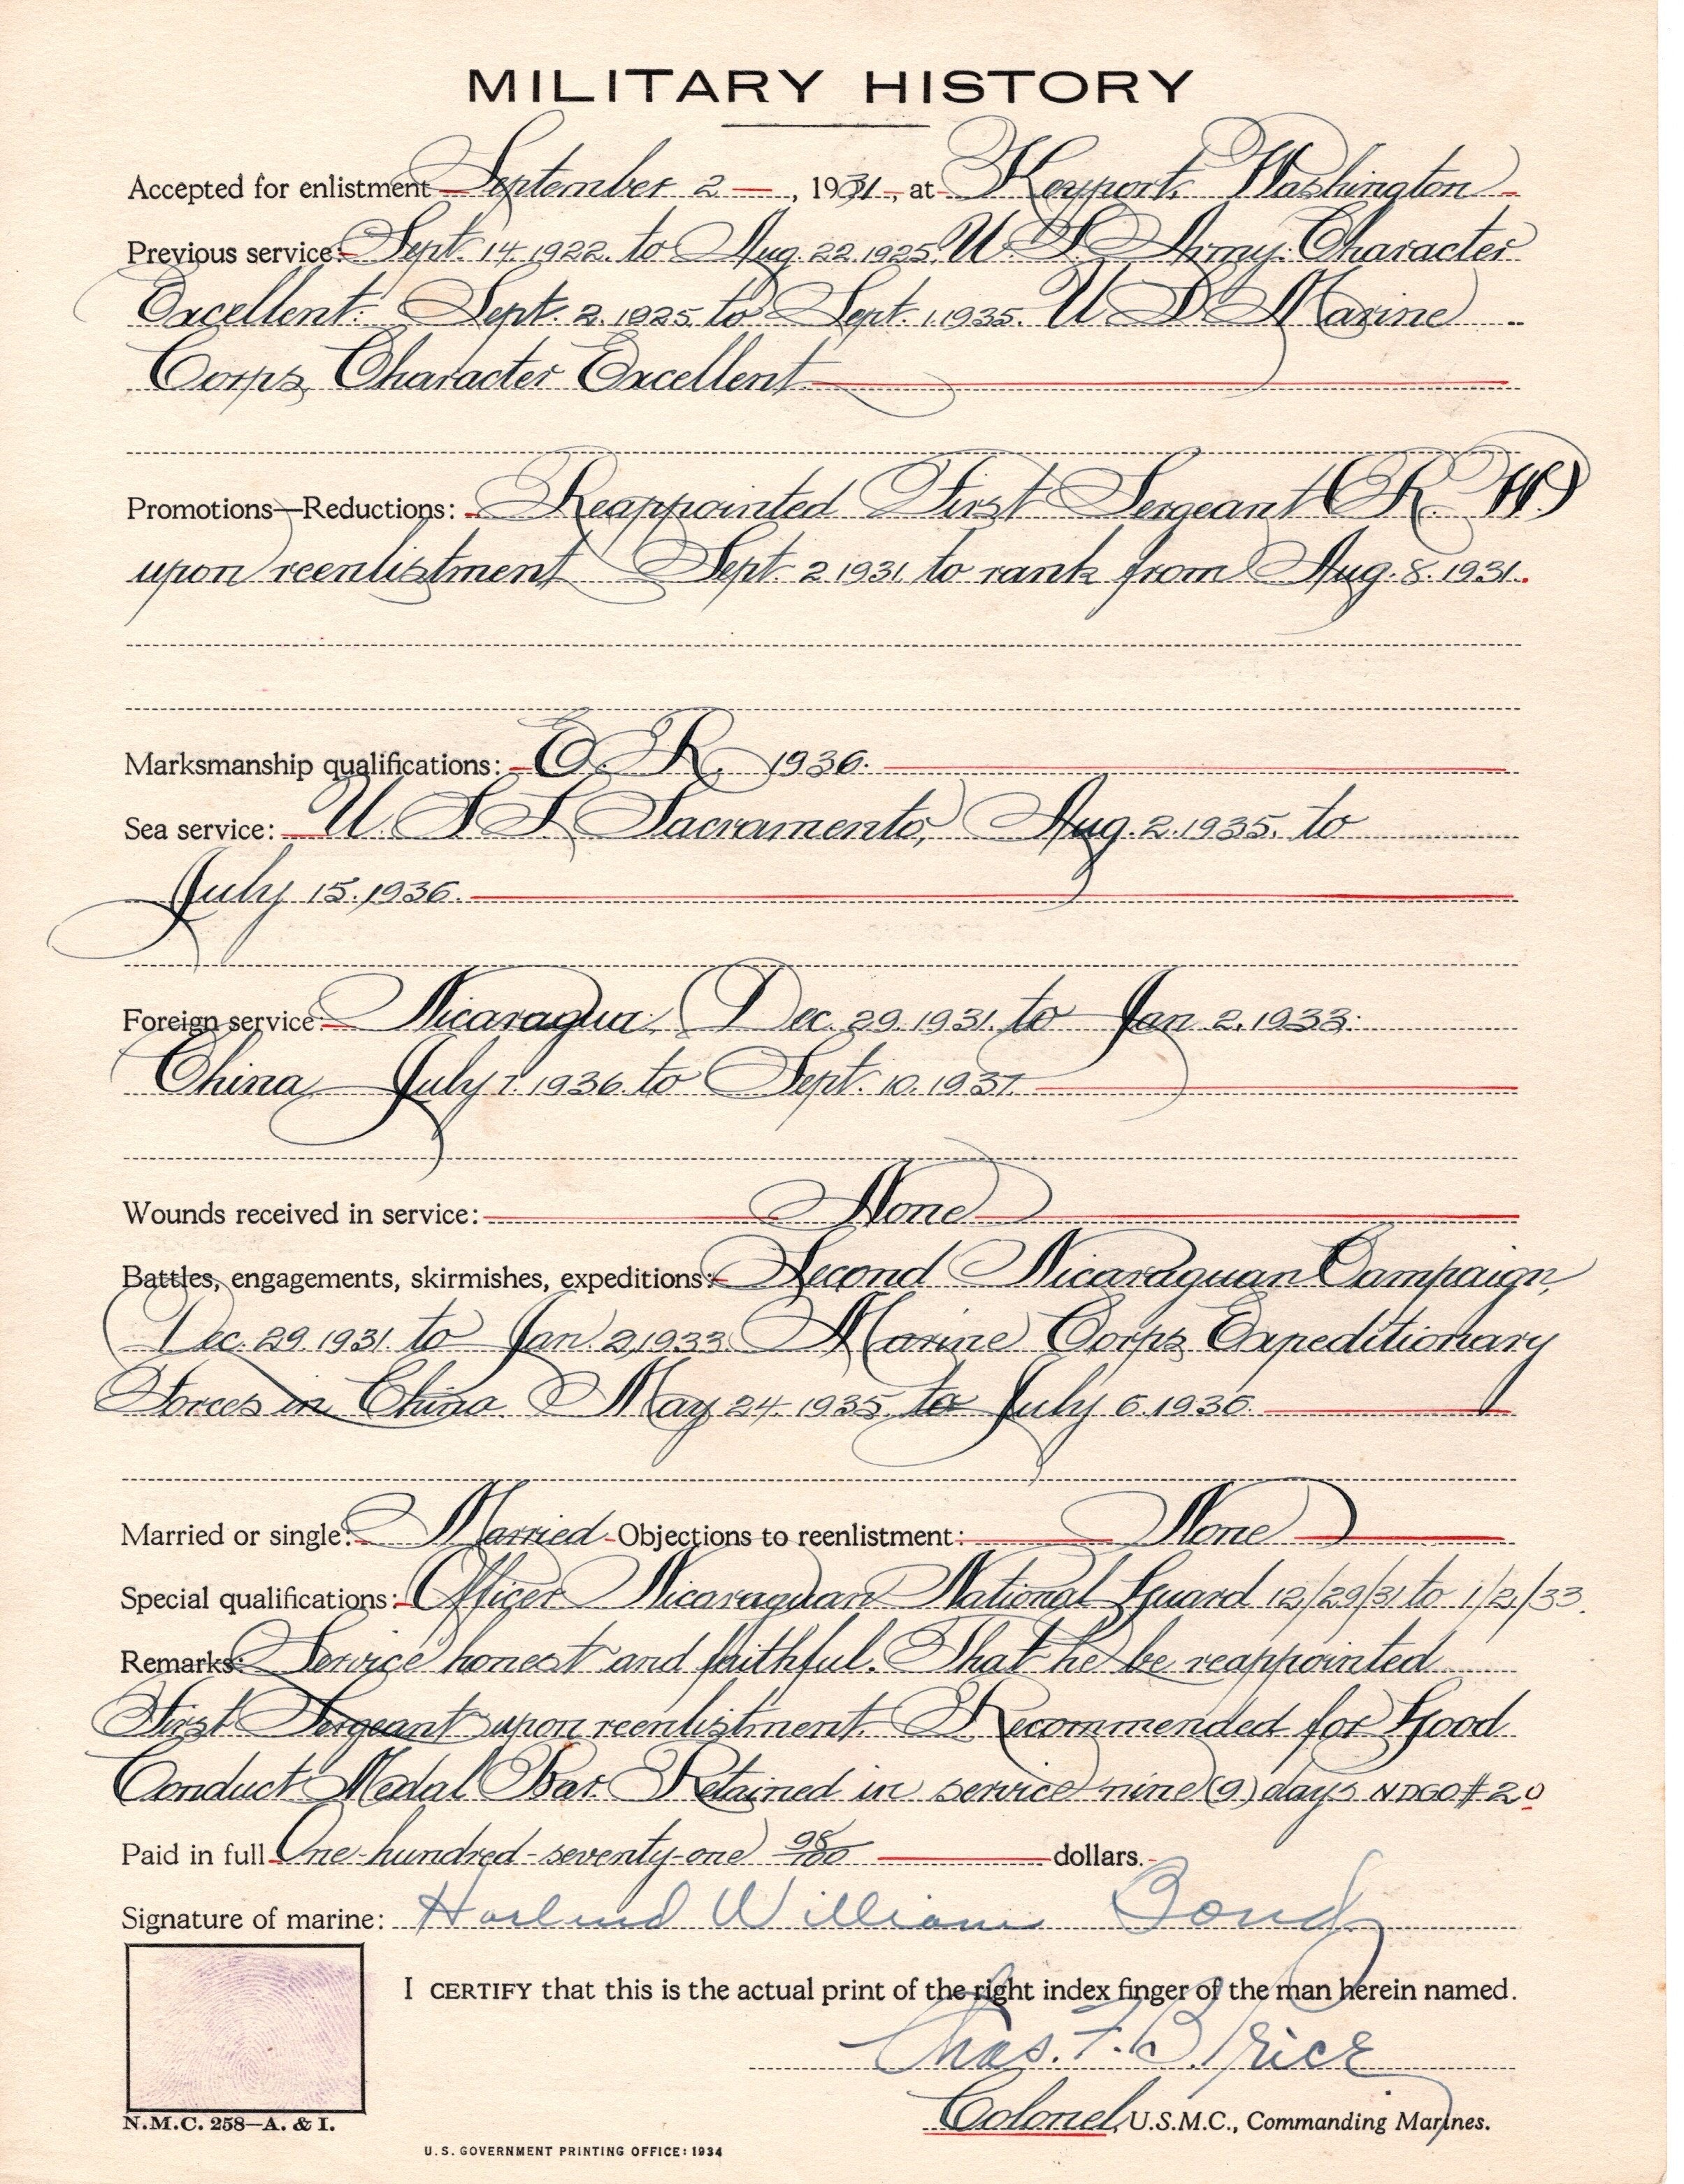 MILITARY HISTORY
Accepted for enlistment September 2, 1931, at Keyport, Washington
Previous service: Sept. 14. 1922. to Aug. 22. 1925. U S Army. Character
Excellent. Sept. 2. 1925. to Sept. 1. 1935. U S Marine
Corps, Character Excellent.
Promotions—Reductions: Reappointed First Sergeant (R. W.)
upon reenlistment Sept. 2 1931. to rank from Aug. 8. 1931.
Marksmanship qualifications: E. R. 1936.
Sea service: U. S S Sacramento, Aug. 2. 1935. to
July 15. 1936.
Foreign service: Nicaragua, Dec. 29. 1931. to Jan 2. 1933.
China July 7. 1936. to Sept. 10. 1937.
Wounds received in service: None
Battles, engagements, skirmishes, expeditions: Second Nicaraguan Campaign,
Dec. 29. 1931. to Jan. 2, 1933. Marine Corps Expeditionary
Forces in China. May 24. 1935. to July 6. 1936.
Married or single: Married Objections to reenlistment: None
Special qualifications: Officer Nicaraguan National Guard 12/29/31 to 1/2/33.
Remarks: Service honest and faithful. That he be reappointed
First Sergeant upon reenlistment. Recommended for Good
Conduct Medal Bar. Retained in service nine (9) days NDGO #20
Paid in full One-hundred-seventy-one 98/100 dollars.
Signature of marine: Harlund William Bond
I CERTIFY that this is the actual print of the right index finger of the man herein named.
Chas. F. B. Price
Colonel, U.S.M.C., Commanding Marines.
N.M.C. 258—A. & I.
U. S. GOVERNMENT PRINTING OFFICE: 1934